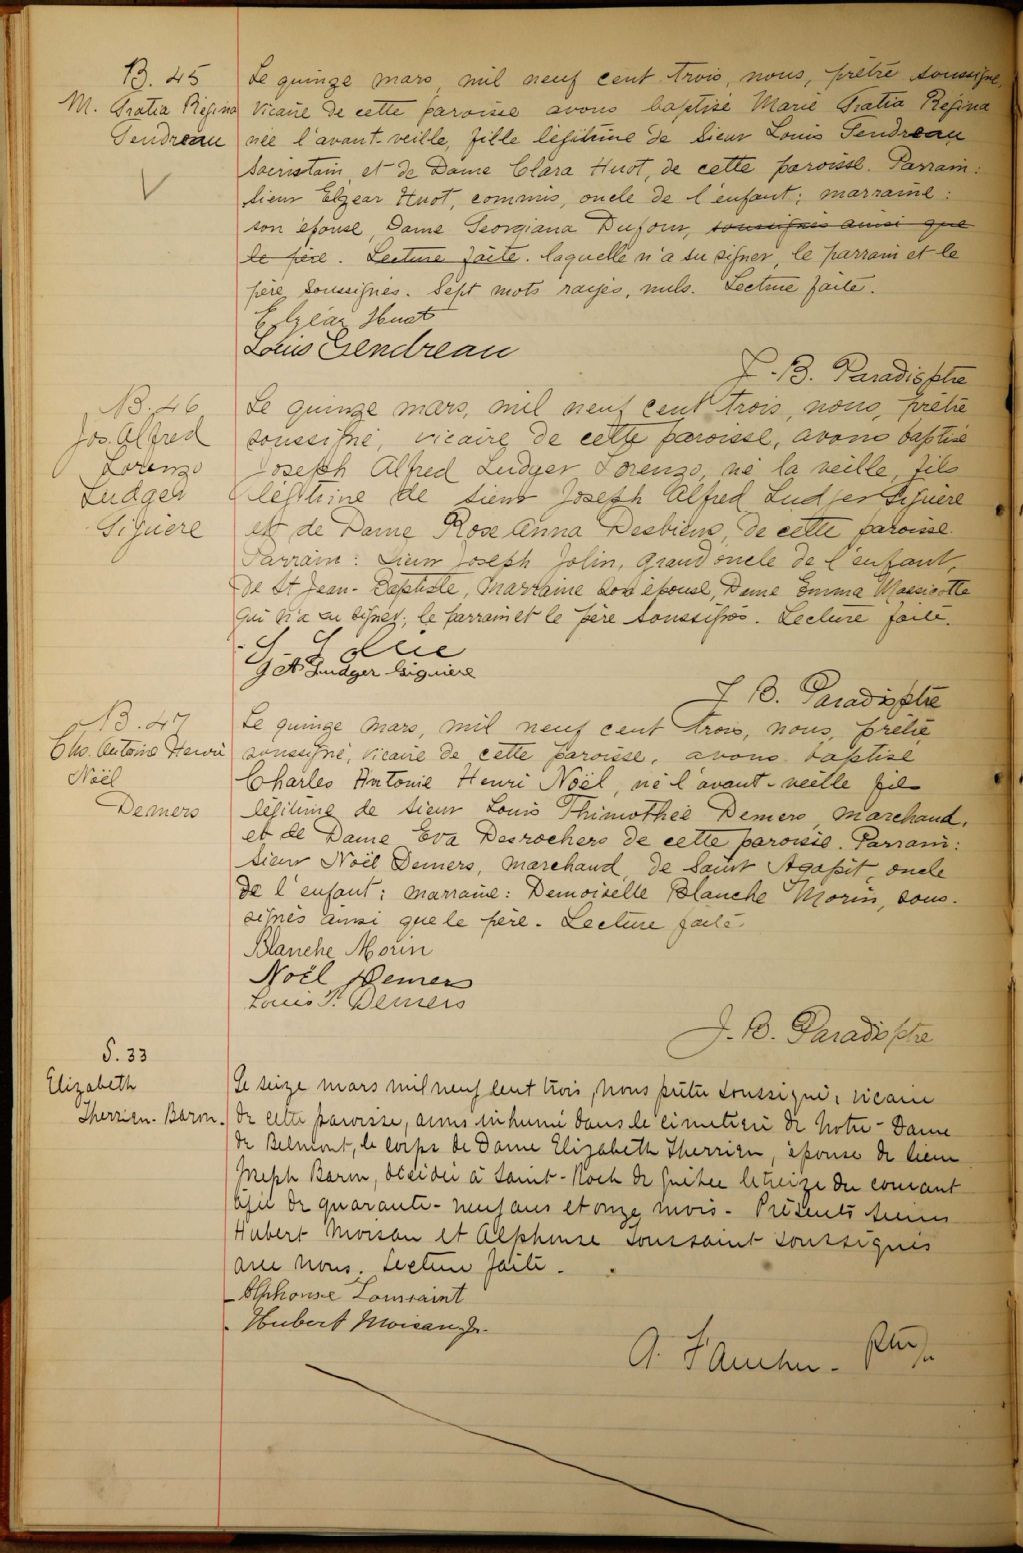 B. 45
M. Gratia Régina
Gendreau
Le quinze mars, mil neuf cent trois, nous, prêtre soussigné,
vicaire de cette paroisse avons baptisé Marie Gratia Régina
née l'avant-veille, fille légitime de Sieur Louis Gendreau,
sacristain, et de Dame Clara Huot, de cette paroisse. Parrain:
Sieur Elzéar Huot, commis, oncle de l'enfant; marraine:
son épouse, Dame Georgiana Dufour, soussignés ainsi que
le père. Lecture faite. laquelle n'a su signer, le parrain et le
père soussignés. Sept mots rayés, nuls. Lecture faite.
Elzéar Huot
Louis Gendreau
J.-B. Paradis ptre
B. 46
Jos. Alfred
Lorenzo
Ludger
Giguère
Le quinze mars, mil neuf cent trois, nous, prêtre
soussigné, vicaire de cette paroisse, avons baptisé
Joseph Alfred Ludger Lorenzo, né la veille, fils
légitime de Sieur Joseph Alfred Ludger Giguère
et de Dame Rose Anna Desbiens, de cette paroisse.
Parrain: Sieur Joseph Jolin, grand oncle de l'enfant,
de St Jean-Baptiste, marraine son épouse, Dame Emma Massicotte
qui n'a su signer; le parrain et le père soussignés. Lecture faite.
J. A Ludger Giguère
J. B. Paradis ptre
B. 47
Chs. Antoine Henri
Noël
Demers
Le quinze mars, mil neuf cent trois, nous, prêtre
soussigné, vicaire de cette paroisse, avons baptisé
Charles Antoine Henri Noël, né l'avant-veille fils
légitime de Sieur Louis Thimothée Demers, marchand,
et de Dame Eva Desrochers de cette paroisse. Parrain:
Sieur Noël Demers, marchand, de Saint Agapit, oncle
de l'enfant; marraine: Demoiselle Blanche Morin, sous-
signés ainsi que le père. Lecture faite.
Blanche Morin
Noël Demers
Louis T. Demers
J.-B. Paradis ptre
S. 33
Elizabeth
Therrien-Baron.
Le seize mars mil neuf cent trois, nous prêtre soussigné, vicaire
de cette paroisse, avons inhumé dans le cimetière de Notre-Dame
de Belmont, le corps de Dame Elizabeth Therrien, épouse de Sieur
Joseph Baron, décédée à Saint-Roch de Québec le treize du courant
âgée de quarante-neuf ans et onze mois - Présents Sieurs
Hubert Moisan et Alphonse Toussaint soussignés
avec nous. Lecture faite -
Alphonse Toussaint
Hubert Moisan Jr.
A. Faucher - Ptre